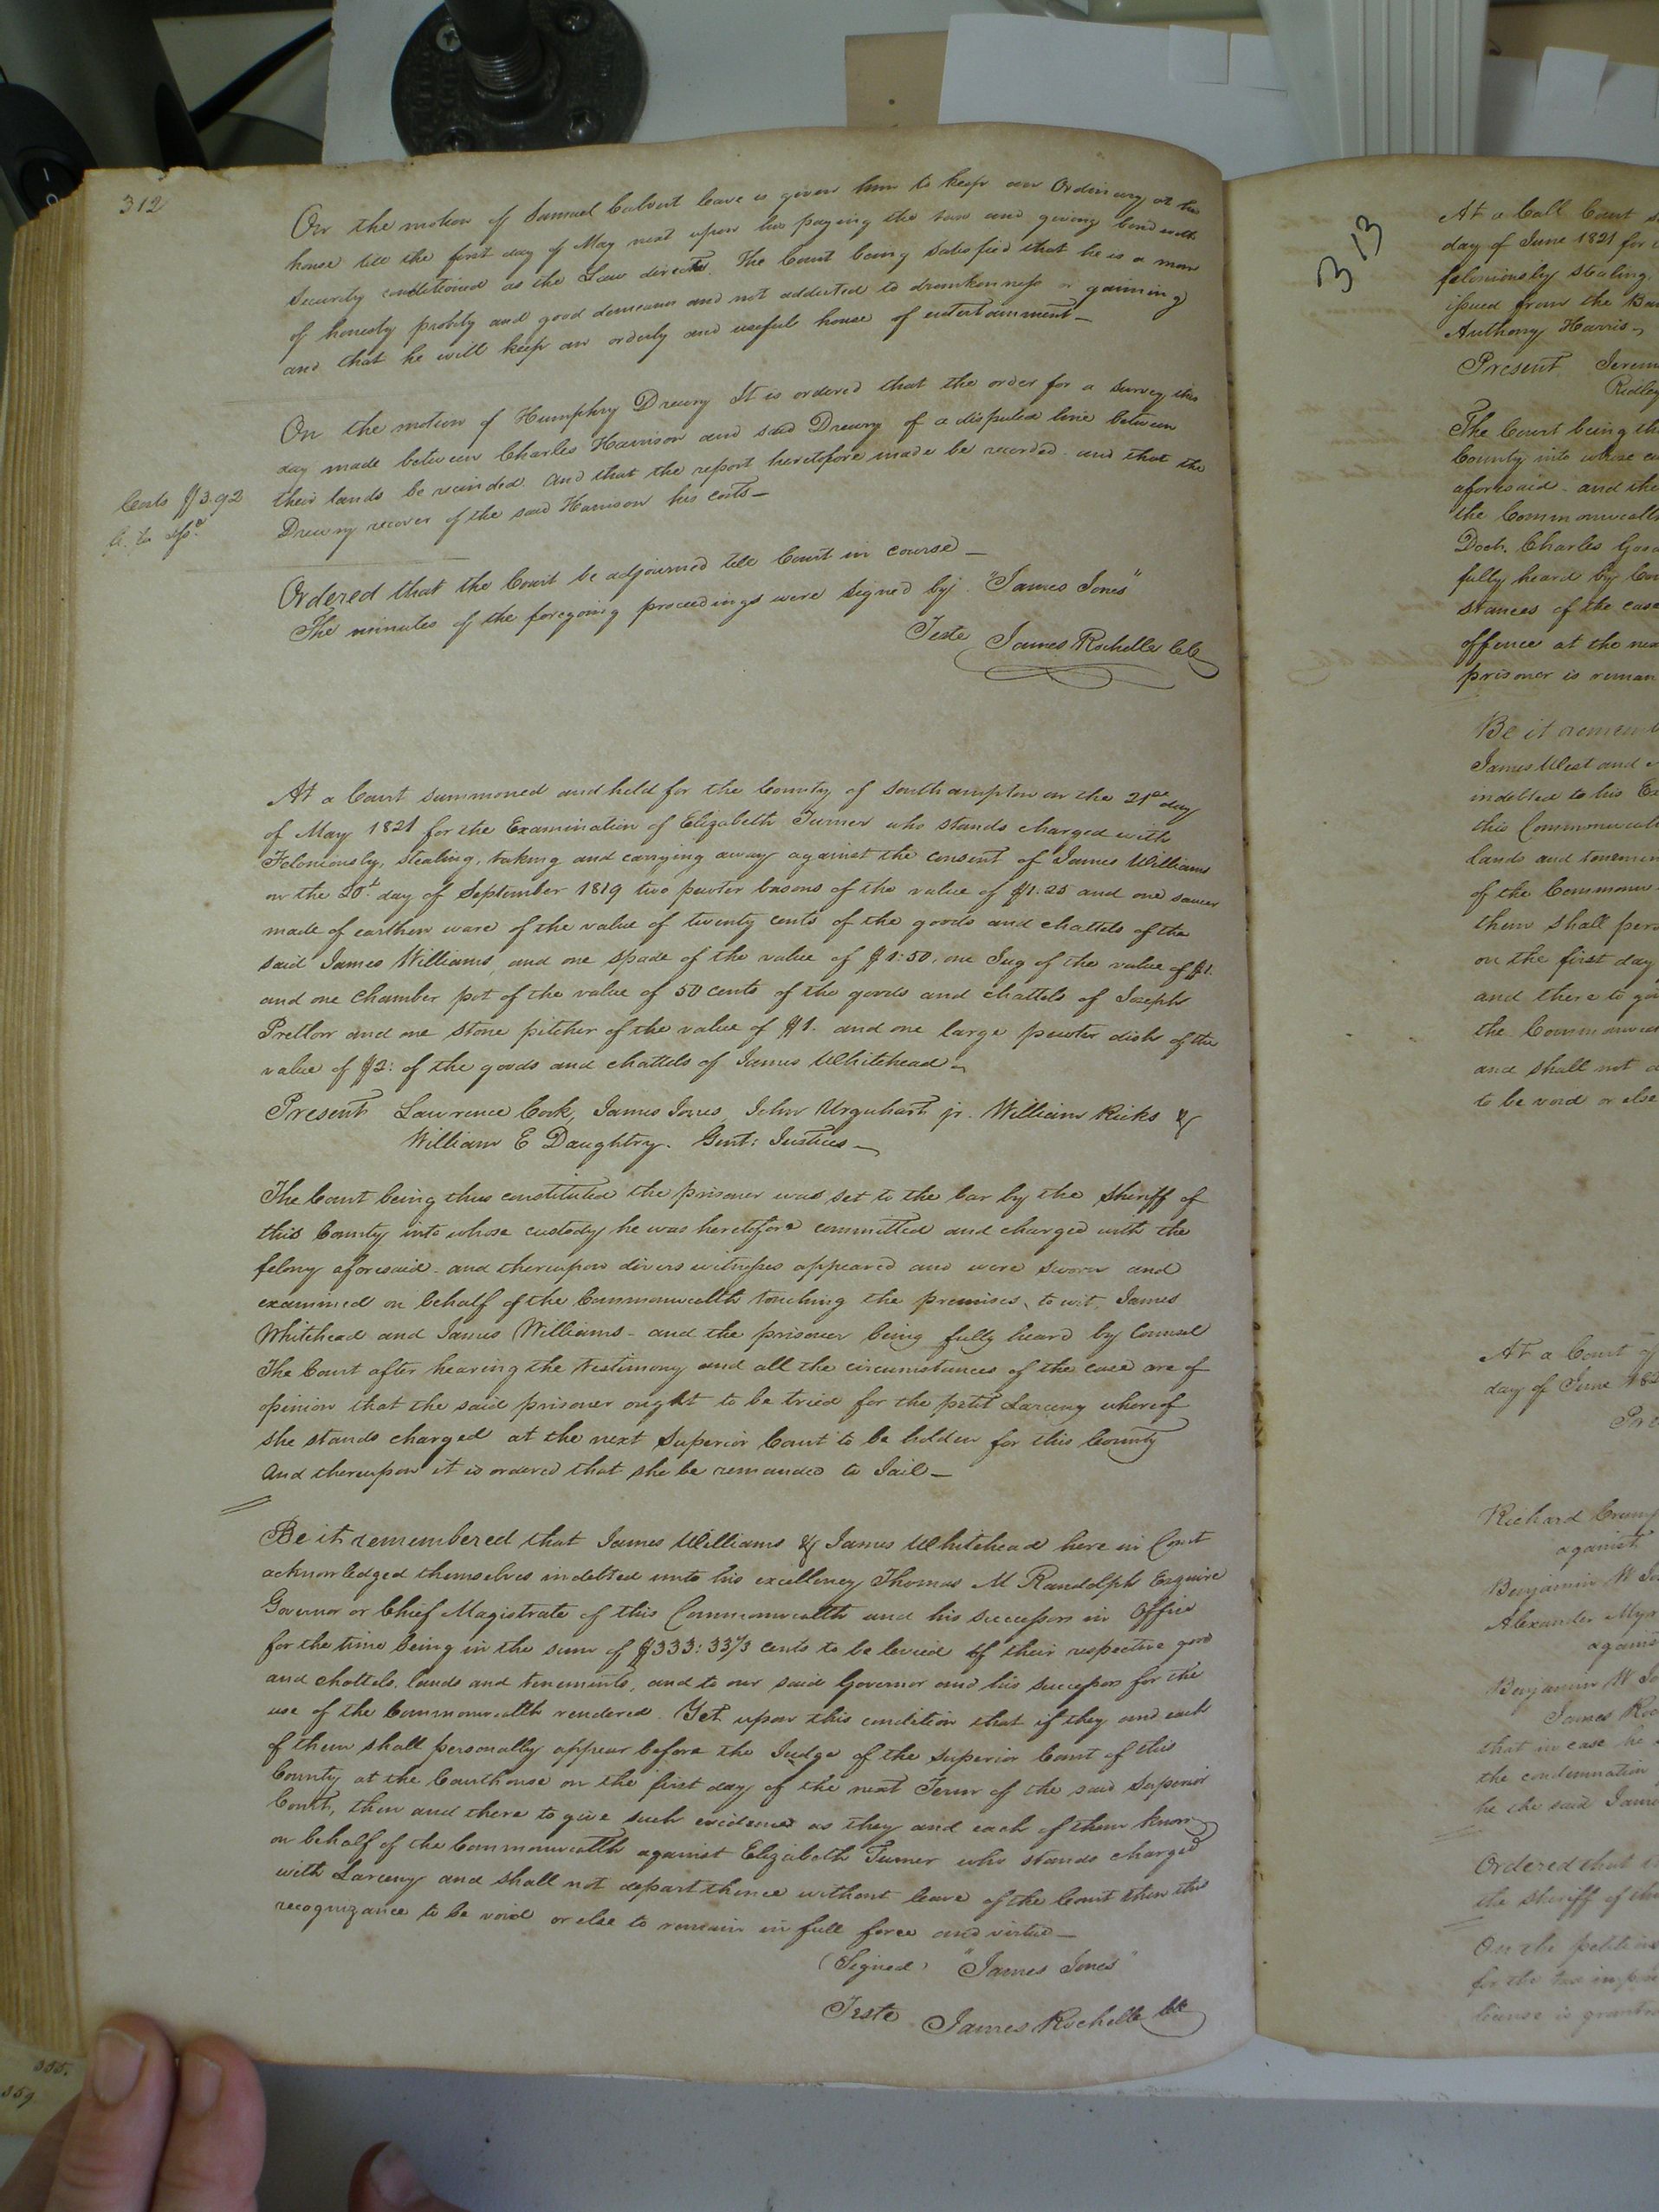 312
On the motion of Samuel Calvert leave is given him to keep an Ordinary at his
house till the first day of May next upon his paying the tax and giving bond with
Security conditioned as the Law directs. The Court being satisfied that he is a man
of honesty probity and good demeanor and not addicted to drunkenness or gaming
and that he will keep an orderly and useful house of entertainment—
On the motion of Humphry Drewry It is ordered that the order for a survey this
day made between Charles Harrison and said Drewry of a disputed line between
their lands be recinded. And that the report heretofore made be recorded. and that the
Drewry recover of the said Harrison his costs—
Costs $3.92
Ordered that the Court be adjourned till Court in course—
The minutes of the foregoing proceedings were signed by "James Jones"
Teste James Rochelle CC
At a Court summoned and held for the County of Southampton on the 21st day
of May 1821 for the Examination of Elizabeth Turner who stands charged with
Feloniously, stealing, taking and carrying away against the consent of James Williams
on the 20t day of September 1819 two pewter basons of the value of $1:25 and one saucer
made of earthen ware of the value of twenty cents of the goods and chattels of the
said James Williams, and one spade of the value of $1:50, one Jug of the value of $1.
and one chamber pot of the value of 50 cents of the goods and chattels of Joseph
Pretlow and one stone pitcher of the value of $1. and one large pewter dish of the
value of $2: of the goods and chattels of James Whitehead—
Present Lawrence Cook, James Jones, John Urquhart jr. William Ricks &
William E Daughtry. Gent: Justices—
The Court being thus constituted the prisoner was set to the bar by the Sheriff of
this County into whose custody he was heretofore committed and charged with the
felony aforesaid - and thereupon divers witnesses appeared and were sworn and
examined on behalf of the Commonwealth touching the premises, to wit, James
Whitehead and James Williams - and the prisoner being fully heard by Counsel
The Court after hearing the testimony and all the circumstances of the case are of
opinion that the said prisoner ought to be tried for the petit Larceny whereof
she stands charged at the next Superior Court to be holden for this County
And thereupon it is ordered that she be remanded to Jail—
Be it remembered that James Williams & James Whitehead here in Court
acknowledged themselves indebted unto his excellency Thomas M Randolph Esquire
Governor or Chief Magistrate of this Commonwealth and his successors in Office
for the time being in the sum of $333:33⅓ cents to be levied of their respective good
and chattels, lands and tenements, and to our said Governor and his successors for the
use of the Commonwealth rendered. Yet upon this condition that if they and each
of them shall personally appear before the Judge of the Superior Court of this
County at the Courthouse on the first day of the next Term of the said Superior
Court, then and there to give such evidence as they and each of them know
on behalf of the Commonwealth against Elizabeth Turner who stands charged
with Larceny and shall not depart thence without leave of the Court then this
recognizance to be void or else to remain in full force and virtue—
(Signed) "James Jones"
Teste James Rochelle CC
355.
359
313
At a Call Court
day of June 1821 for
feloniously stealing,
issued from the
Anthony Harris—
Present
Ridley
The Court being
County into whose
aforesaid - and the
the Commonwealth
Doct. Charles
fully heard by
stances of the case
offence at the
prisoner is
Be it
James West and
indebted to his
this
lands and
of the
them shall
on the first day
and there to
the
and shall not
to be void or else
At a Court
day of June
Richard
against
Benjamin W
Alexander
Benjamin W
James
that in case he
the condemnation
he the said
Ordered that
the sheriff of
On the petition
for the tax